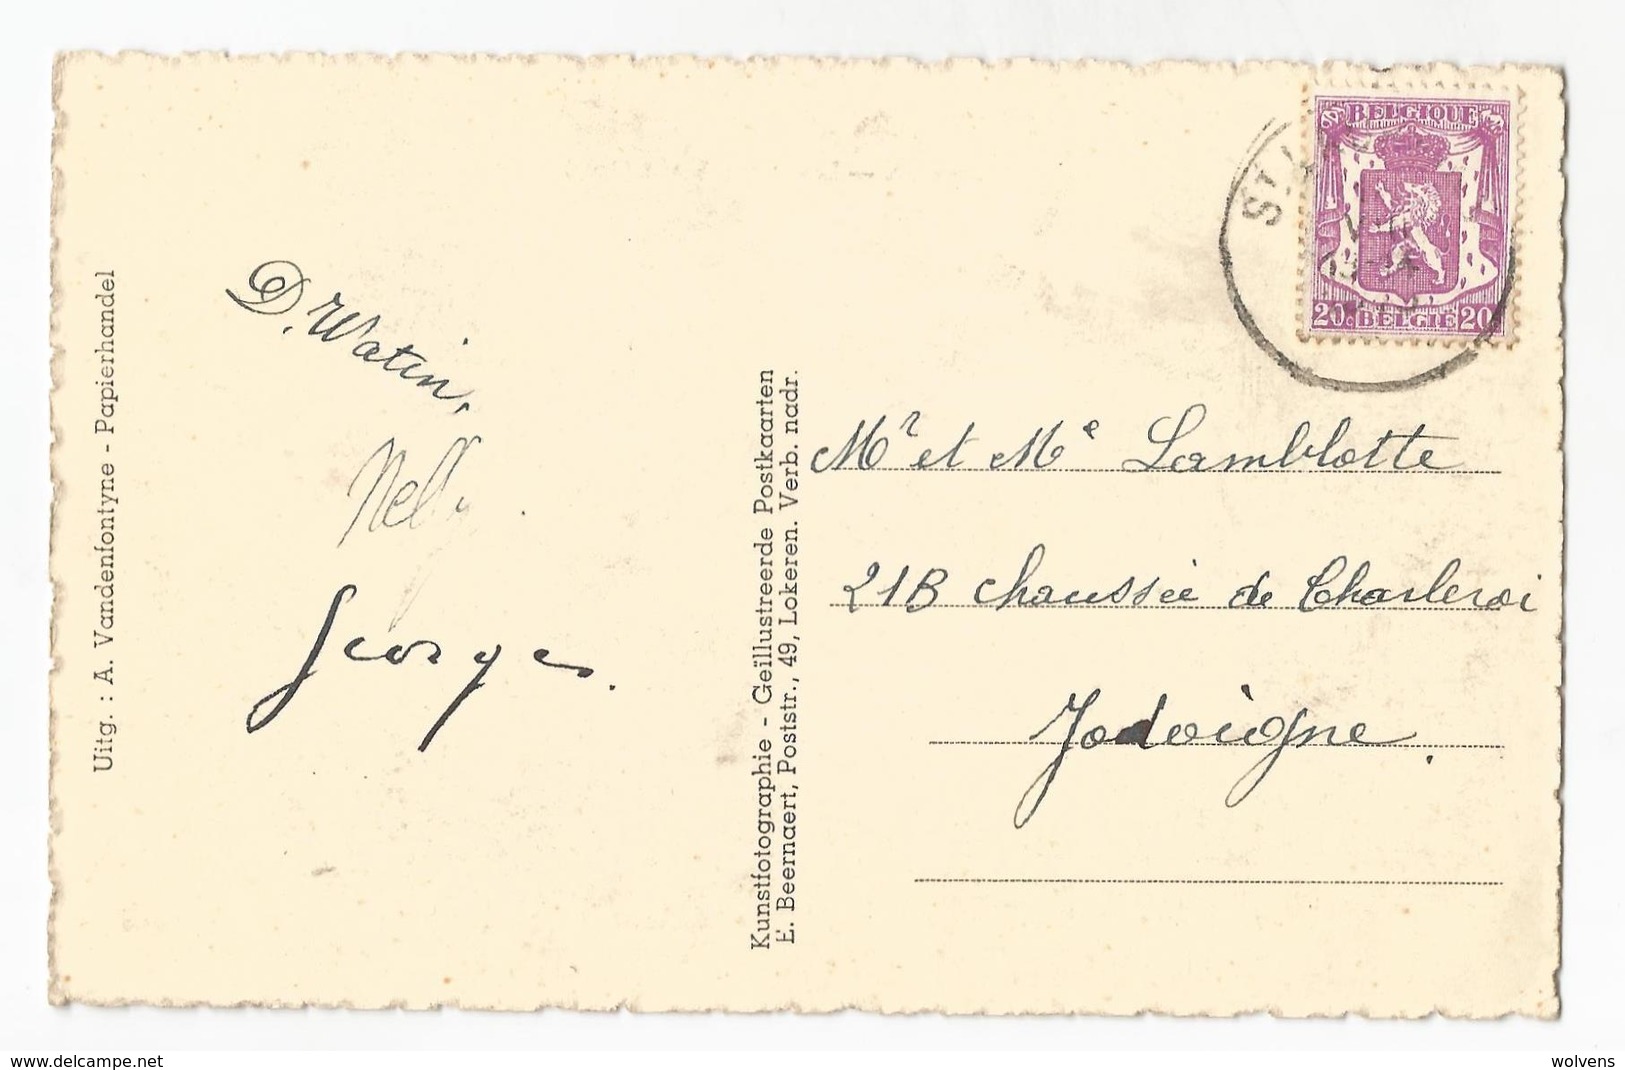 D. Watin,
Nelly.
Georges.
Uitg. : A. Vandenfontyne - Papierhandel
Kunstfotographie - Geïllustreerde Postkaarten
E. Beernaert, Poststr., 49, Lokeren. Verb. nadr.
BELGIQUE
20c BELGIE 20c
ST.
Mr et Me Lamblotte
21B chaussée de Charleroi
Jodoigne.
www.delcampe.net
wolvens